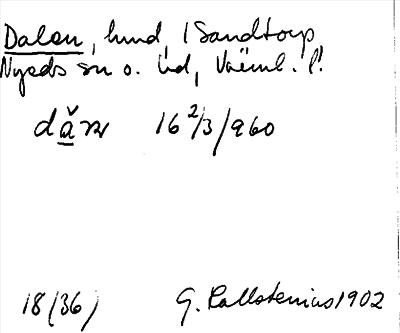 Dalen, hmd, 1 Sandtorp
Nyeds sn o. hd, Värml. l.
16 2/3 / 960
18 (36) G. Kallstenius 1902